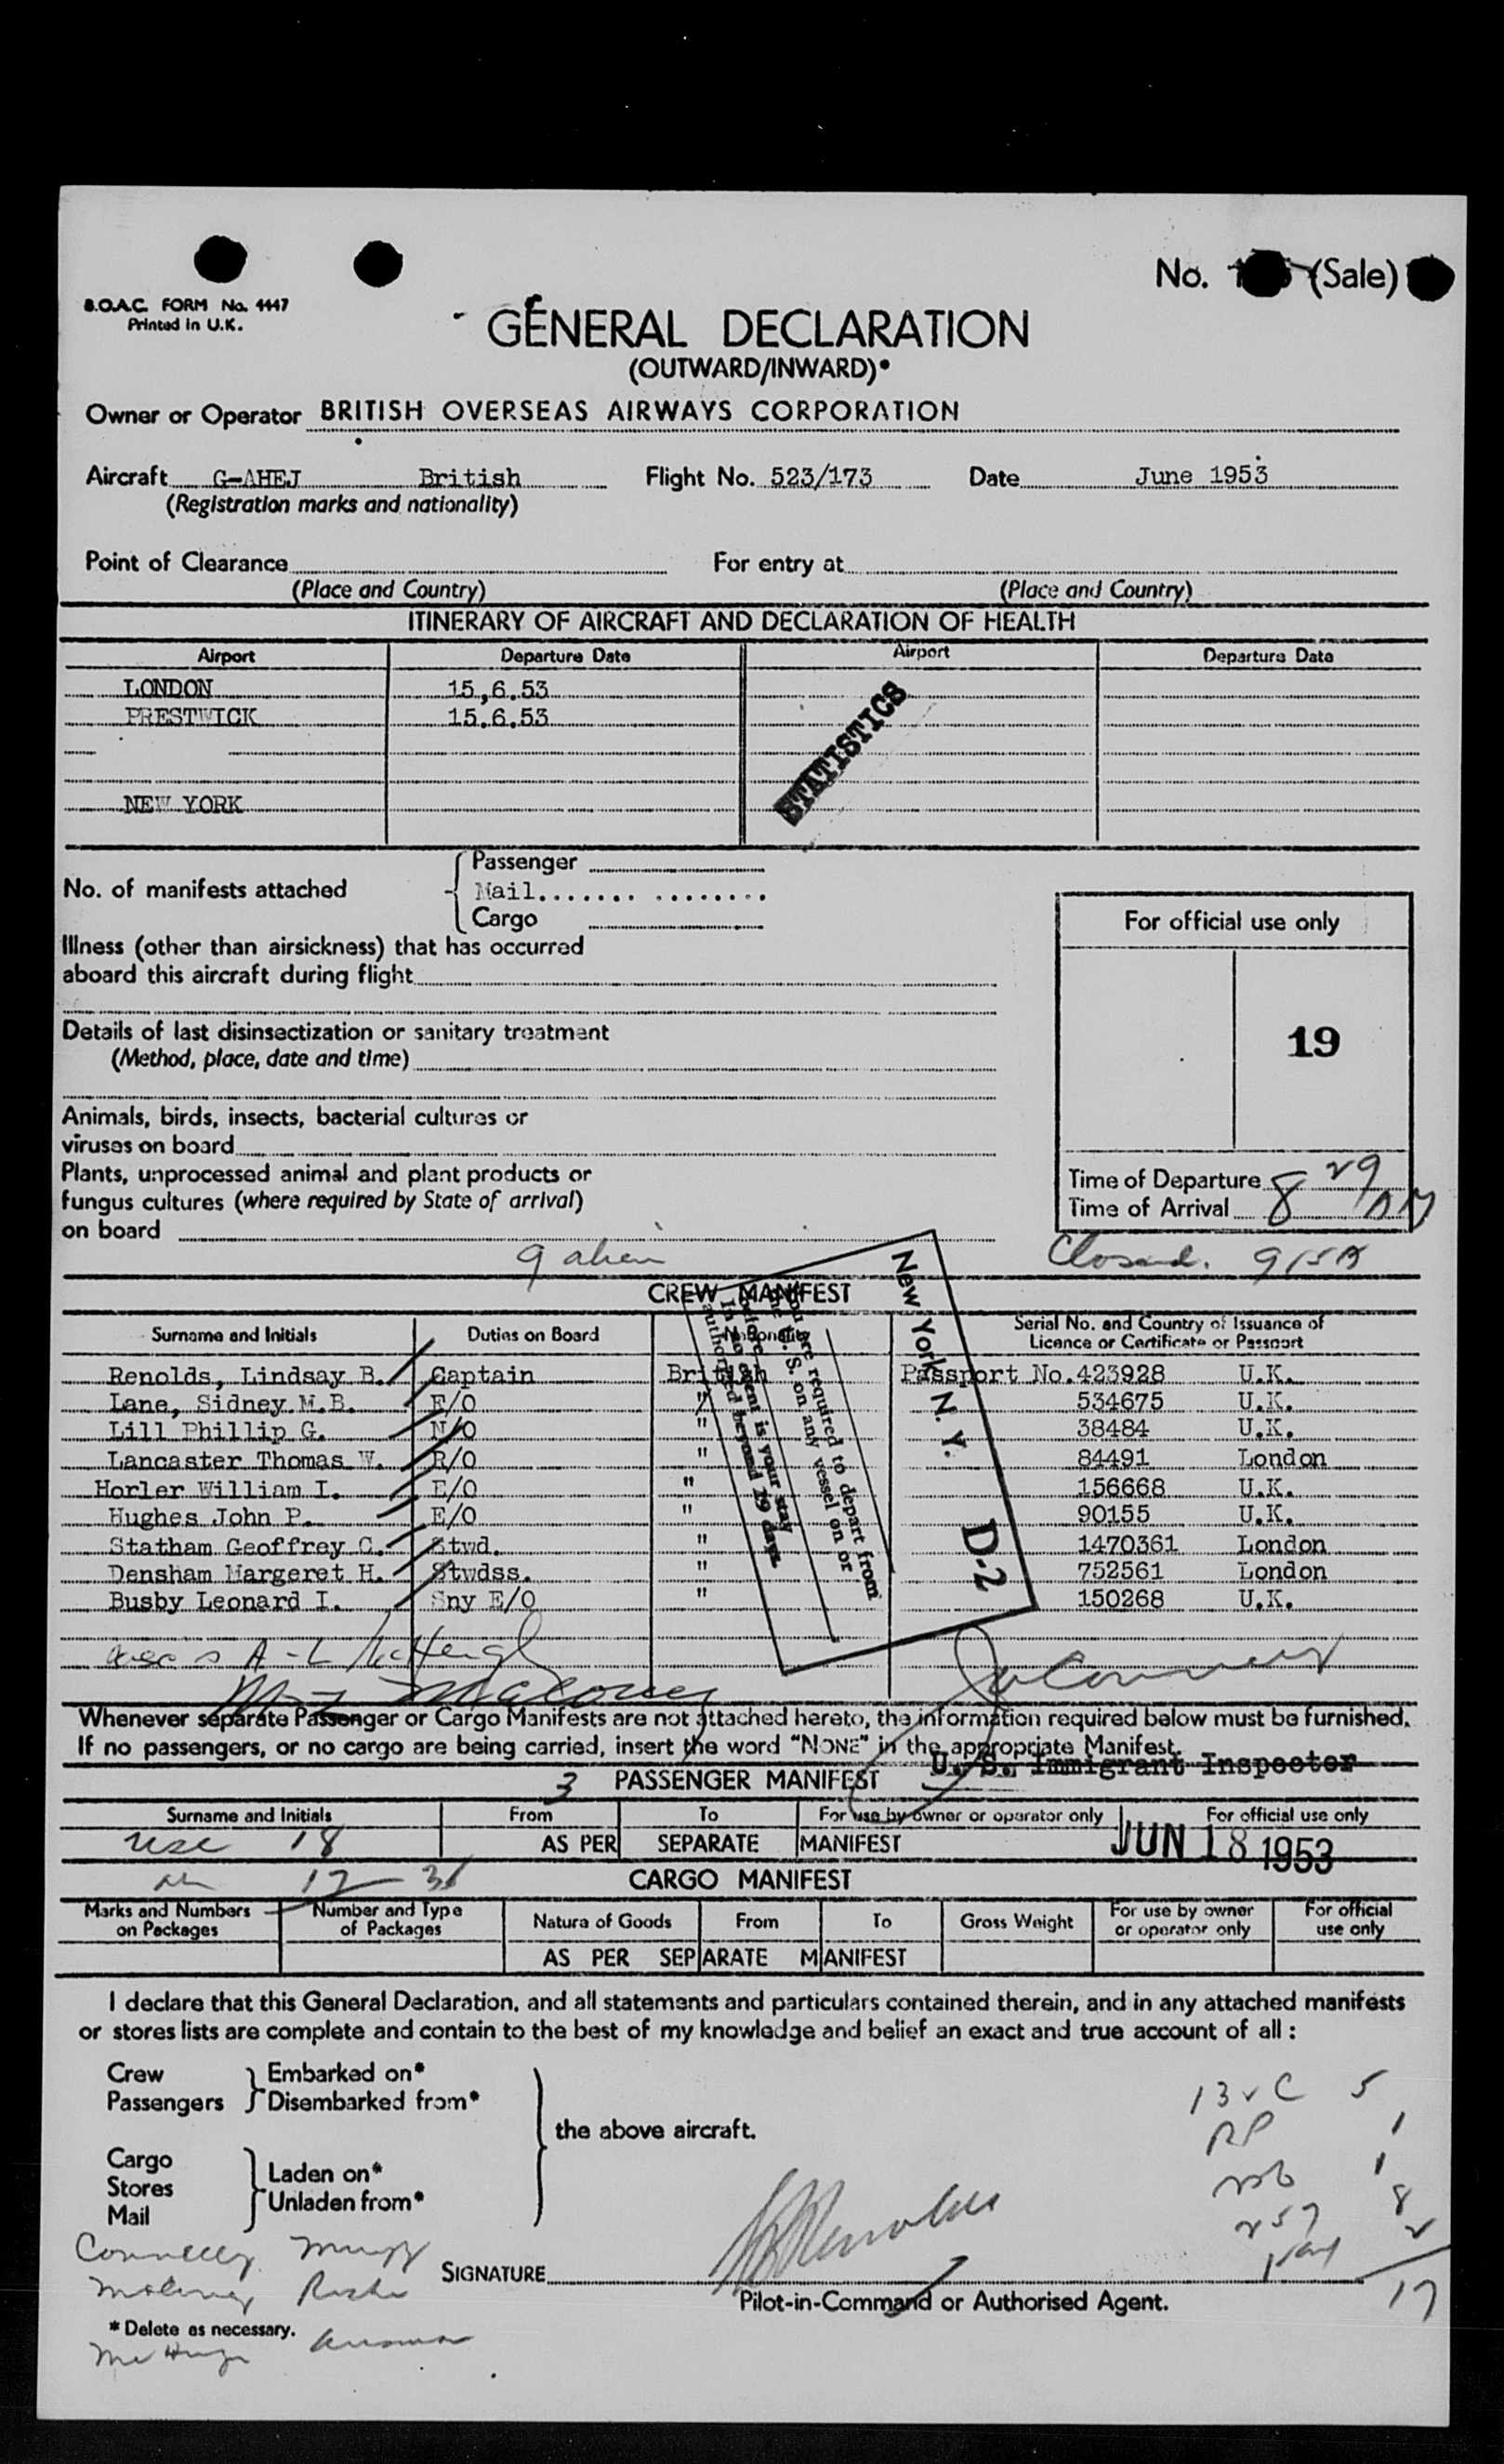 No. (Sale)
B.O.A.C. FORM No. 4447
Printed in U.K.
GENERAL DECLARATION
(OUTWARD/INWARD)*
Owner or Operator BRITISH OVERSEAS AIRWAYS CORPORATION
Aircraft G-AHEJ British Flight No. 523/173 Date June 1953
(Registration marks and nationality)
Point of Clearance For entry at
(Place and Country) (Place and Country)
ITINERARY OF AIRCRAFT AND DECLARATION OF HEALTH
Airport Departure Date Airport Departure Date
LONDON 15.6.53
PRESTWICK 15.6.53
STATISTICS
NEW YORK
No. of manifests attached
Passenger
Mail
Cargo
For official use only
Illness (other than airsickness) that has occurred
aboard this aircraft during flight
Details of last disinsectization or sanitary treatment
(Method, place, date and time)
19
Animals, birds, insects, bacterial cultures or
viruses on board
Plants, unprocessed animal and plant products or
fungus cultures (where required by State of arrival)
on board
Time of Departure
Time of Arrival 8 29 AM
9 alien Closed. 915A
CREW MANIFEST
Surname and Initials Duties on Board Nationality Serial No. and Country of Issuance of
Licence or Certificate or Passport
Renolds, Lindsay B. Captain British Passport No. 423928 U.K.
Lane, Sidney M.B. F/O " 534675 U.K.
Lill Phillip G. N/O " 38484 U.K.
Lancaster Thomas W. R/O " 84491 London
Horler William I. E/O " 156668 U.K.
Hughes John P. E/O " 90155 U.K.
Statham Geoffrey C. Stwd. " 1470361 London
Densham Margeret H. Stwdss. " 752561 London
Busby Leonard I. Sny E/O " 150268 U.K.
New York N. Y. D-2
You are required to depart from
the U. S. on any vessel on or
before
In no event is your stay
authorized beyond 29 days.
Whenever separate Passenger or Cargo Manifests are not attached hereto, the information required below must be furnished.
If no passengers, or no cargo are being carried, insert the word "NONE" in the appropriate Manifest.
U. S. Immigrant Inspector
3 PASSENGER MANIFEST
Surname and Initials From To For use by owner or operator only For official use only
usc 18 AS PER SEPARATE MANIFEST
JUN 18 1953
CARGO MANIFEST
Marks and Numbers on Packages Number and Type of Packages Nature of Goods From To Gross Weight For use by owner or operator only For official use only
AS PER SEPARATE MANIFEST
I declare that this General Declaration, and all statements and particulars contained therein, and in any attached manifests
or stores lists are complete and contain to the best of my knowledge and belief an exact and true account of all :
Crew
Passengers
Embarked on*
Disembarked from*
the above aircraft.
Cargo
Stores
Mail
Laden on*
Unladen from*
5
1
1
8
17
SIGNATURE
Pilot-in-Command or Authorised Agent.
* Delete as necessary.